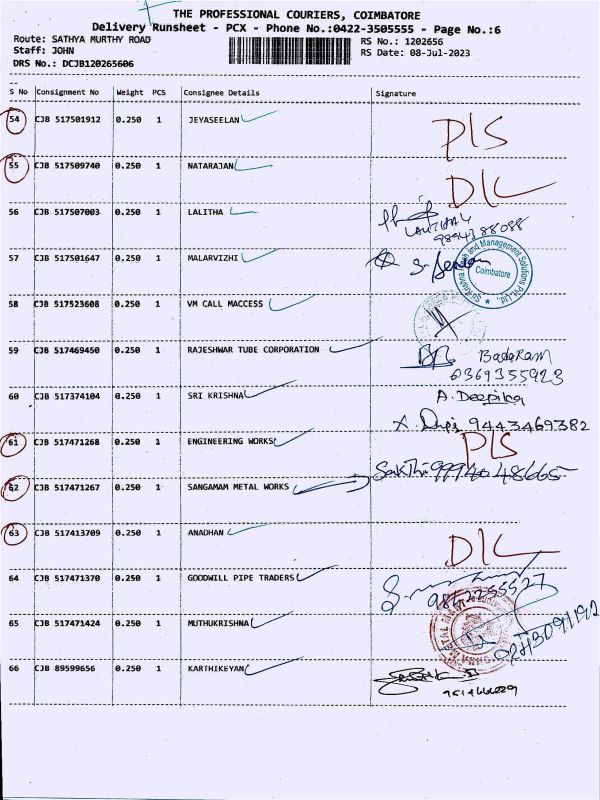 THE PROFESSIONAL COURIERS, COIMBATORE
Delivery Runsheet - PCX - Phone No.:0422-3505555 - Page No.:6
Route: SATHYA MURTHY ROAD RS No.: 1202656
Staff: JOHN RS Date: 08-Jul-2023
DRS No.: DCJB120265606
S No Consignment No Weight PCS Consignee Details Signature
54 CJB 517501912 0.250 1 JEYASEELAN PLS
55 CJB 517509740 0.250 1 NATARAJAN DLC
56 CJB 517507003 0.250 1 LALITHA LALITHA
57 CJB 517501647 0.250 1 MALARVIZHI
and Management Solutions Pvt Ltd.
Coimbatore
58 CJB 517523608 0.250 1 VM CALL MACCESS
59 CJB 517469450 0.250 1 RAJESHWAR TUBE CORPORATION Badaram
6369355923
60 CJB 517374104 0.250 1 SRI KRISHNA A. Deepika
9443469382
61 CJB 517471268 0.250 1 ENGINEERING WORKS PLS
Sakthi 9994048665
62 CJB 517471267 0.250 1 SANGAMAM METAL WORKS
63 CJB 517413709 0.250 1 ANADHAN DLC
64 CJB 517471370 0.250 1 GOODWILL PIPE TRADERS 9842255527
65 CJB 517471424 0.250 1 MUTHUKRISHNA
66 CJB 89599656 0.250 1 KARTHIKEYAN